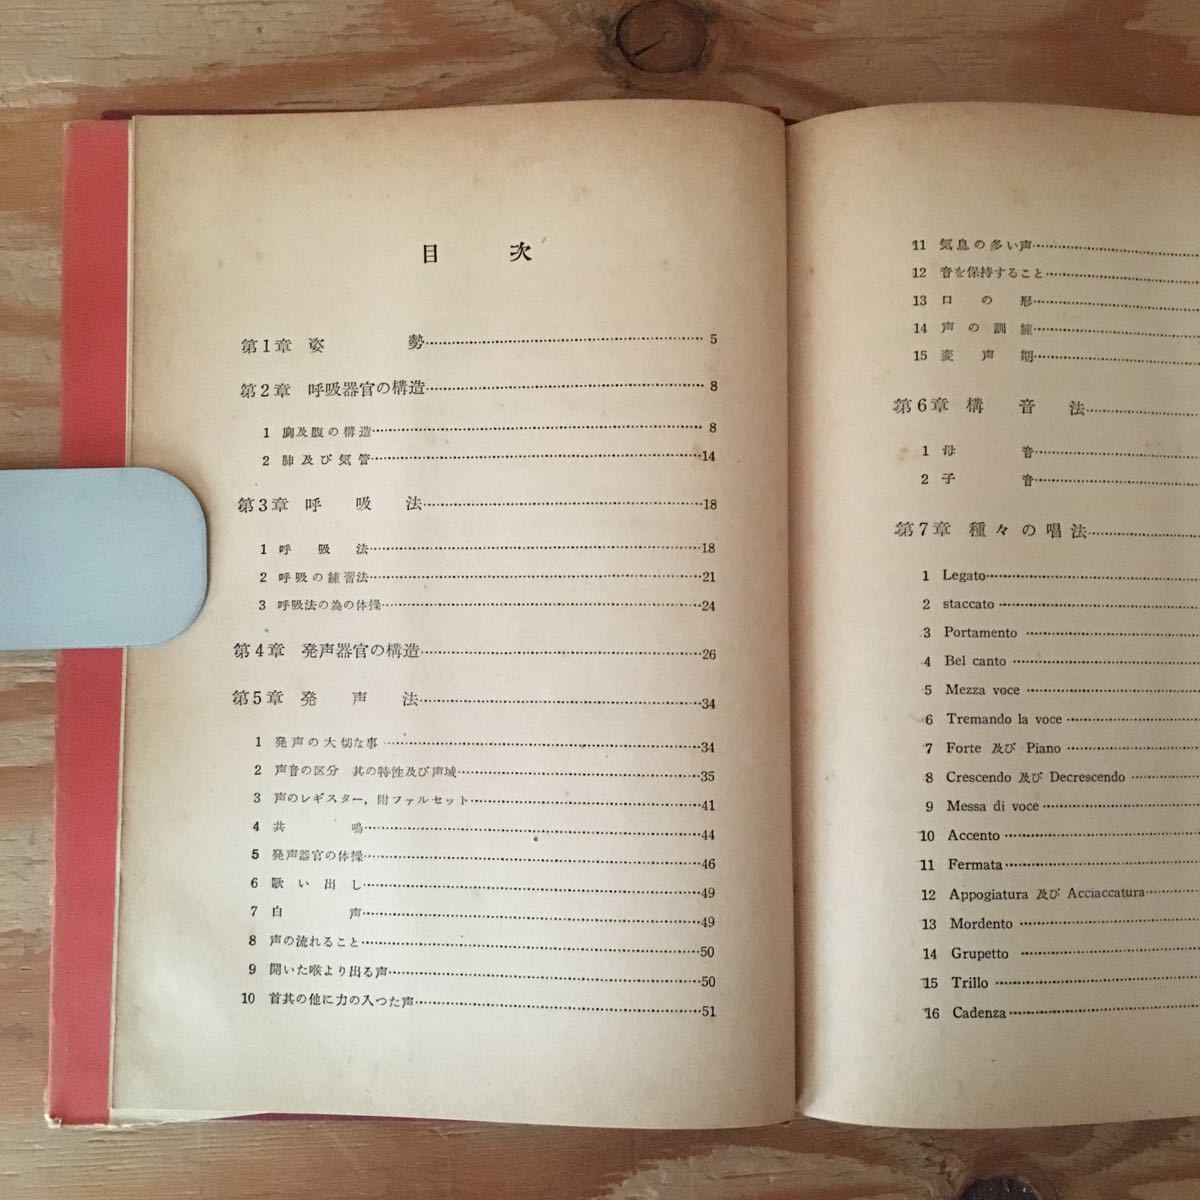 目次
第1章 姿勢……5
第2章 呼吸器官の構造……8
1 胸及腹の構造……8
2 肺及び気管……14
第3章 呼吸法……18
1 呼吸法……18
2 呼吸の練習法……21
3 呼吸法の為の体操……24
第4章 発声器官の構造……26
第5章 発声法……34
1 発声の大切な事……34
2 声音の区分 其の特性及び声域……35
3 声のレギスター,附ファルセット……41
4 共鳴……44
5 発声器官の体操……46
6 歌い出し……49
7 白声……49
8 声の流れること……50
9 開いた喉より出る声……50
10 首其の他に力の入つた声……51
11 気息の多い声……
12 音を保持すること……
13 口の形……
14 声の訓練……
15 変声期……
第6章 構音法……
1 母音……
2 子音……
第7章 種々の唱法……
1 Legato……
2 staccato……
3 Portamento……
4 Bel canto……
5 Mezza voce……
6 Tremando la voce……
7 Forte 及び Piano……
8 Crescendo 及び Decrescendo……
9 Messa di voce……
10 Accento……
11 Fermata……
12 Appogiatura 及び Acciaccatura……
13 Mordento……
14 Grupetto……
15 Trillo……
16 Cadenza……